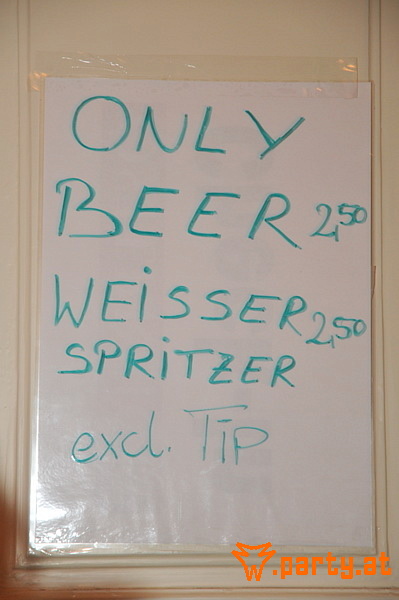 ONLY
BEER 2,50
WEiSSER 2,50
SPRiTZER
excl. TiP
.party.at